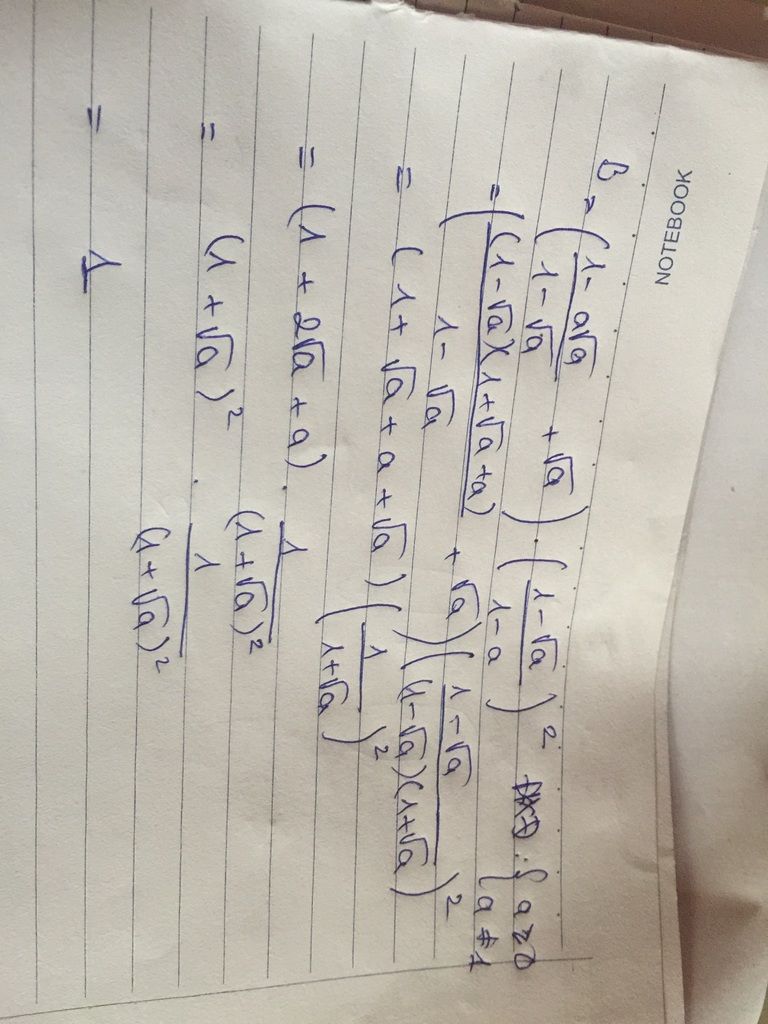 NOTEBOOK
B = ( (1 - a√a)/(1 - √a) + √a ) · ( (1 - √a)/(1 - a) )² : { a ≥ 0
{ a ≠ 1
= ( (1 - √a)(1 + √a + a)/(1 - √a) + √a ) ( (1 - √a)/((1 - √a)(1 + √a)) )²
= (1 + √a + a + √a) ( 1/(1 + √a) )²
= (1 + 2√a + a) · 1/(1 + √a)²
= (1 + √a)² · 1/(1 + √a)²
= 1